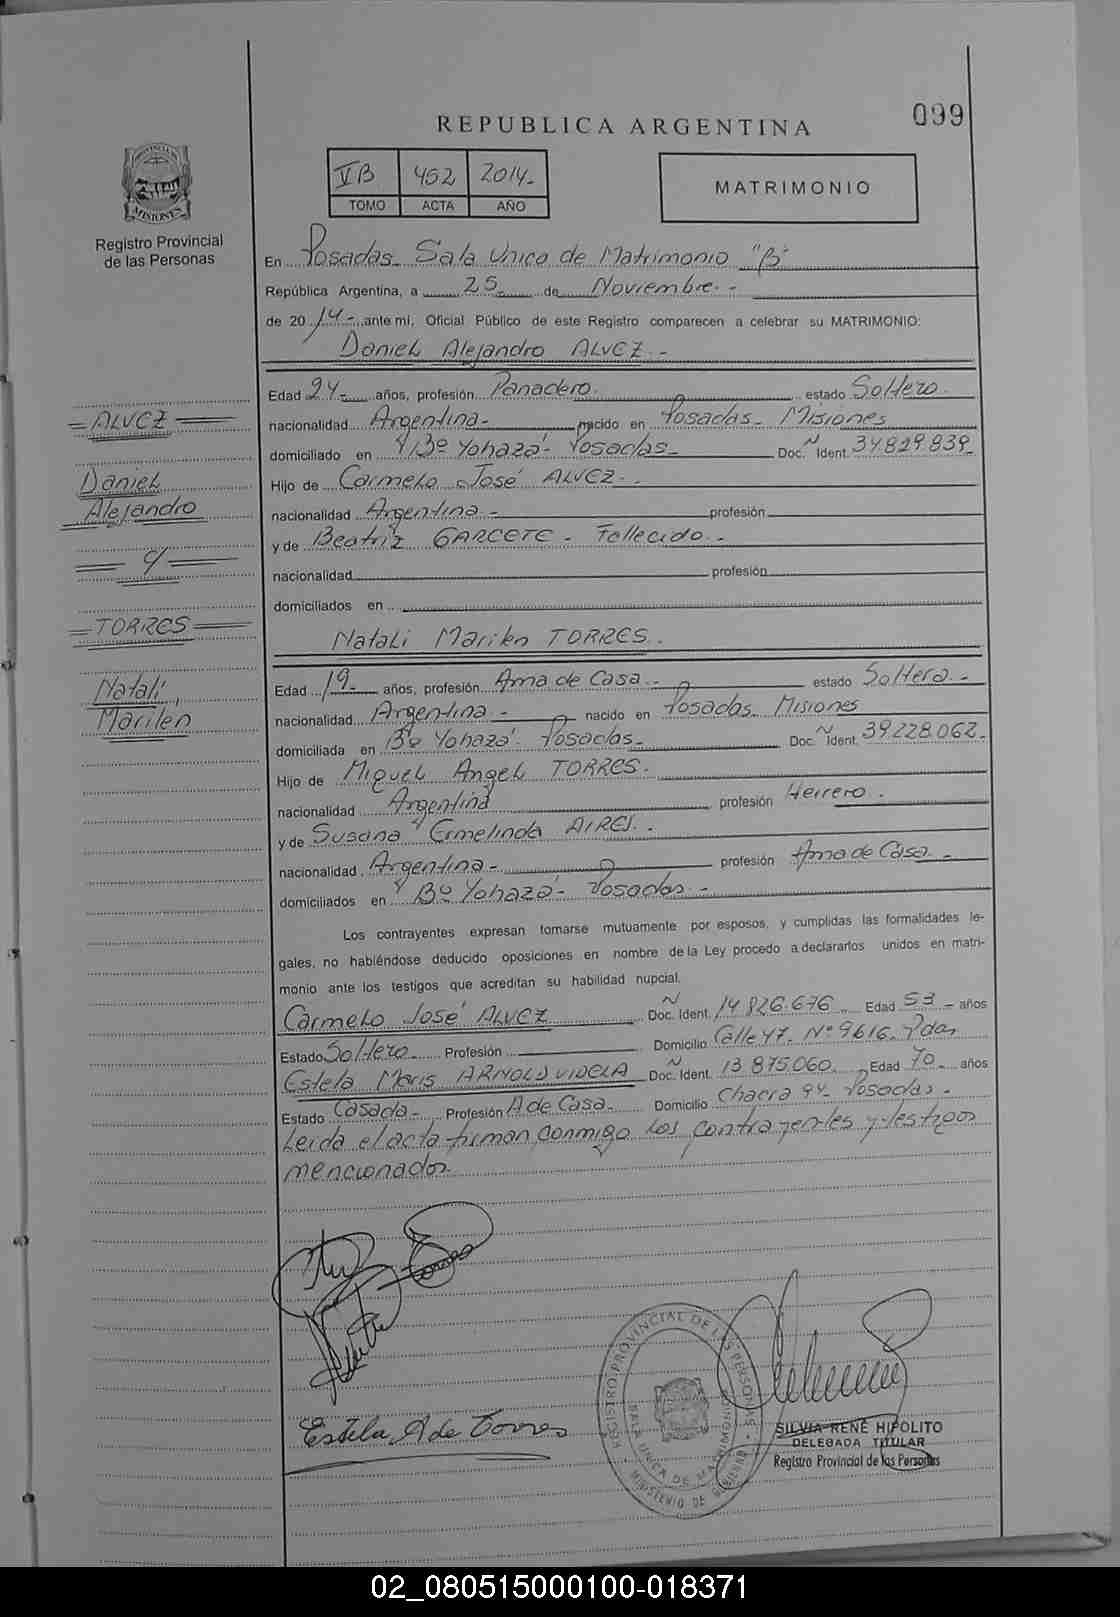 099
REPUBLICA ARGENTINA
VB 452 2014.-
TOMO ACTA AÑO
MATRIMONIO
PROVINCIA DE
MISIONES
Registro Provincial
de las Personas
En Posadas Sala Unica de Matrimonio "B"
República Argentina, a 25 de Noviembre.-
de 2014.- ante mi, Oficial Público de este Registro comparecen a celebrar su MATRIMONIO:
Daniel Alejandro ALVEZ.-
Edad 24- años, profesión Panadero. estado Soltero.
nacionalidad Argentina- nacido en Posadas- Misiones
domiciliado en Bº Yohazá- Posadas- Doc. Ñ Ident. 34.829.839-
Hijo de Carmelo José ALVEZ-.
nacionalidad Argentina- profesión
y de Beatriz GARCETE- Fallecido.-
nacionalidad profesión
domiciliados en
Natali Marilen TORRES.
Edad 19- años, profesión Ama de Casa.- estado Soltera.-
nacionalidad Argentina- nacido en Posadas Misiones
domiciliada en Bº Yohazá- Posadas- Doc. Ñ Ident. 39.228.062-
Hijo de Miguel Angel TORRES.
nacionalidad Argentina profesión Herrero.
y de Susana Ermelinda AIRES.
nacionalidad Argentina- profesión Ama de Casa.-
domiciliados en Bº Yohazá- Posadas.-
Los contrayentes expresan tomarse mutuamente por esposos, y cumplidas las formalidades le-
gales, no habiéndose deducido oposiciones en nombre de la Ley procedo a declararlos unidos en matri-
monio ante los testigos que acreditan su habilidad nupcial.
Carmelo José ALVEZ Doc. Ñ Ident. 14.826.676- Edad 53- años
Estado Soltero. Profesión Domicilio Calle 47- Nº 9616- Pdas
Estela Maris ARNOLD VIDELA Doc. Ñ Ident. 13.875.060. Edad 70- años
Estado Casada- Profesión A de Casa. Domicilio Chacra 94- Posadas.-
Leida el acta firman conmigo los contrayentes y testigos
mencionados.
=ALVEZ=
Daniel
Alejandro
= c/ =
=TORRES=
Natali
Marilen
Torres
Estela A de Torres
REGISTRO PROVINCIAL DE LAS PERSONAS
SALA UNICA DE MATRIMONIO
MINISTERIO DE GOBIERNO
SILVIA RENÉ HIPOLITO
DELEGADA TITULAR
Registro Provincial de las Personas
02_080515000100-018371